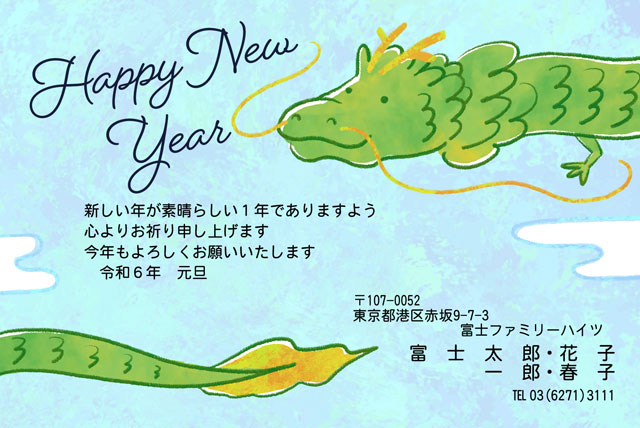 Happy New
Year
新しい年が素晴らしい１年でありますよう
心よりお祈り申し上げます
今年もよろしくお願いいたします
令和６年　元旦
〒107-0052
東京都港区赤坂9-7-3
富士ファミリーハイツ
富　士　太　郎・花　子
一　郎・春　子
℡ 03(6271)3111